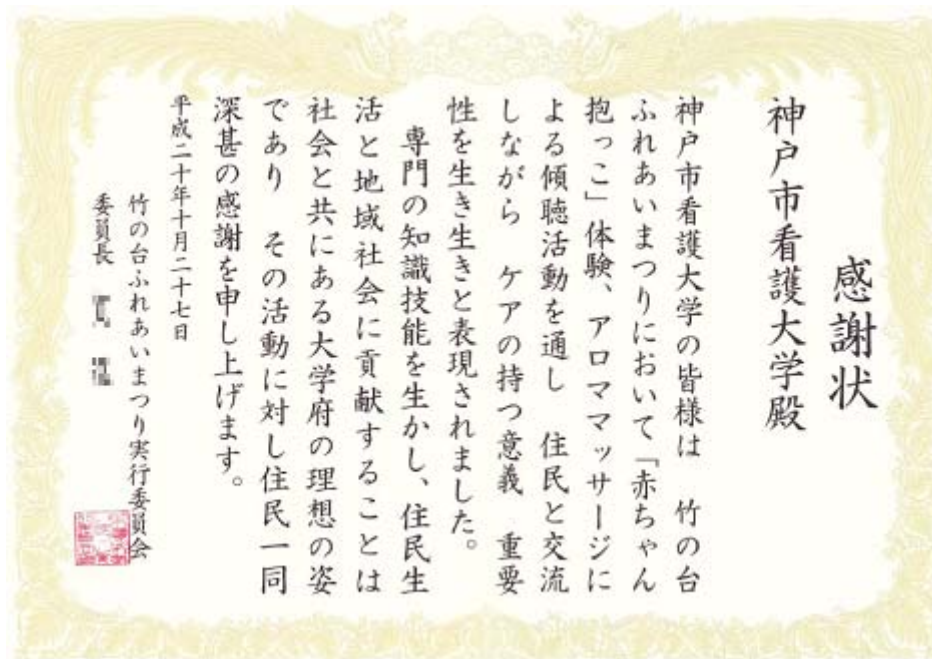 感謝状
神戸市看護大学殿
神戸市看護大学の皆様は　竹の台
ふれあいまつりにおいて「赤ちゃん
抱っこ」体験、アロママッサージに
よる傾聴活動を通し　住民と交流
しながら　ケアの持つ意義　重要
性を生き生きと表現されました。
専門の知識技能を生かし、住民生
活と地域社会に貢献することは
社会と共にある大学府の理想の姿
であり　その活動に対し住民一同
深甚の感謝を申し上げます。
平成二十年十月二十七日
竹の台ふれあいまつり実行委員会
委員長